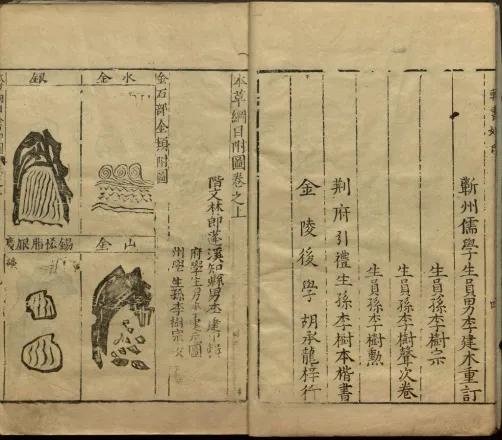 蘄州儒學生員男李建木重訂
生員孫李樹宗
生員孫李樹聲次卷
生員孫李樹勲
荆府引禮生孫李樹本楷書
金陵後學胡承龍梓行
本草綱目附圖卷之上
階文林郎蓬溪知縣男李建中輯
府學生男李建元圖
州學生孫李樹宗校
金石部金類附圖
水金
山金
銀
錫悋脂銀